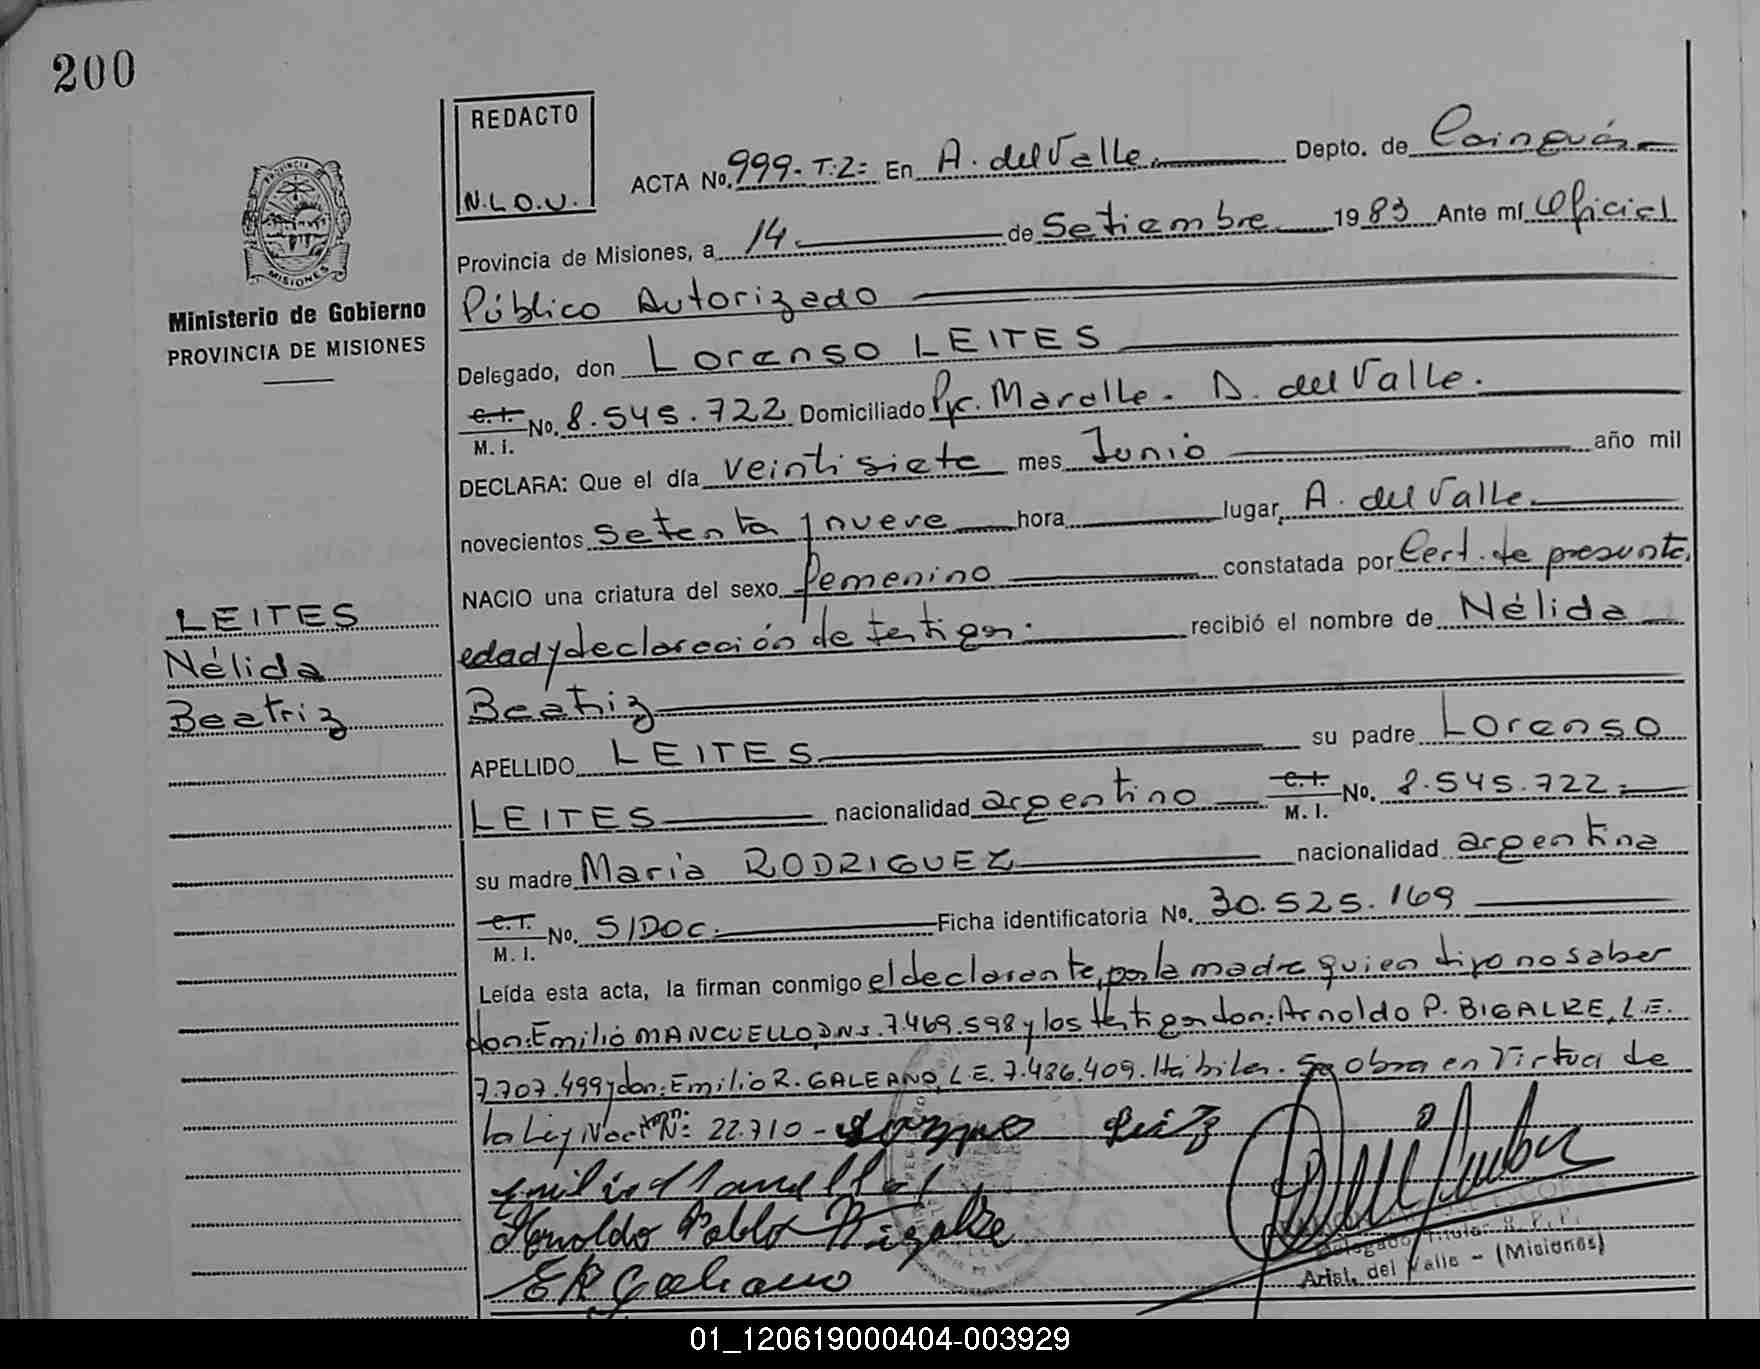 200
REDACTO
N.L.O.V.
ACTA No. 999-T.2= En A. del Valle Depto. de Cainguás
Provincia de Misiones, a 14 de Setiembre 1983 Ante mí Oficial
Público Autorizado
Delegado, don Lorenso LEITES
C.I. M. I. No. 8.545.722 Domiciliado Pje. Marolle. A. del Valle.
DECLARA: Que el día veintisiete mes Junio año mil
novecientos setenta y nueve hora lugar, A. del Valle
NACIO una criatura del sexo femenino constatada por Cert. de presunta
edad y declaración de testigos. recibió el nombre de Nélida
Beatriz
APELLIDO LEITES su padre Lorenso
LEITES nacionalidad argentino C.I. M. I. No. 8.545.722=
su madre Maria RODRIGUEZ nacionalidad argentina
C.I. M. I. No. S/DOC. Ficha identificatoria No. 30.525.169
Leída esta acta, la firman conmigo el declarante, por la madre quien dijo no saber
don: Emilio MANCUELLO, D.N.I. 7.469.598 y los testigos don: Arnoldo P. BIGALKE, L.E.
7.707.499 y don: Emilio R. GALEANO, L.E. 7.486.409. Hábiles. Se obra en virtud de
la Ley Nacional Nº: 22.710-
Arnoldo Pablo Bigalke
E R Galeano
Delegado Titular R.P.P.
Arist. del Valle - (Misiones)
PROVINCIA
MISIONES
Ministerio de Gobierno
PROVINCIA DE MISIONES
LEITES
Nélida
Beatriz
01_120619000404-003929